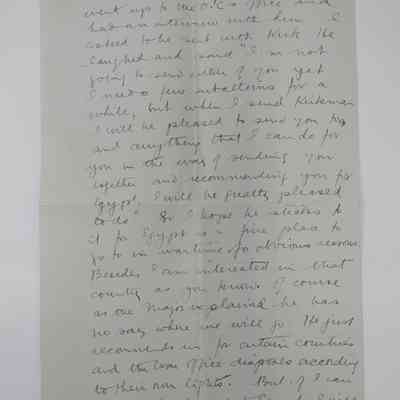 went up to the O.C's office and
had an interview with him. I
asked to be sent with Kirk. He
laughed and said "I am not
going to send either of you yet
I need a few subalterns for a
while, but when I send Kirkman
I will be pleased to send you too
and anything that I can do for
you in the way of sending you
together and recommending you for
Egypt, I will be greatly pleased
to do". So I hope he sticks to
it for Egypt is a fine place to
go to in wartime for obvious reasons.
Besides I am interested in that
country as you know. Of course
as the Major explained he has
no say where we will go. He just
recommends us for certain countries
and the War Office disposes according
to their own lights. But if I can